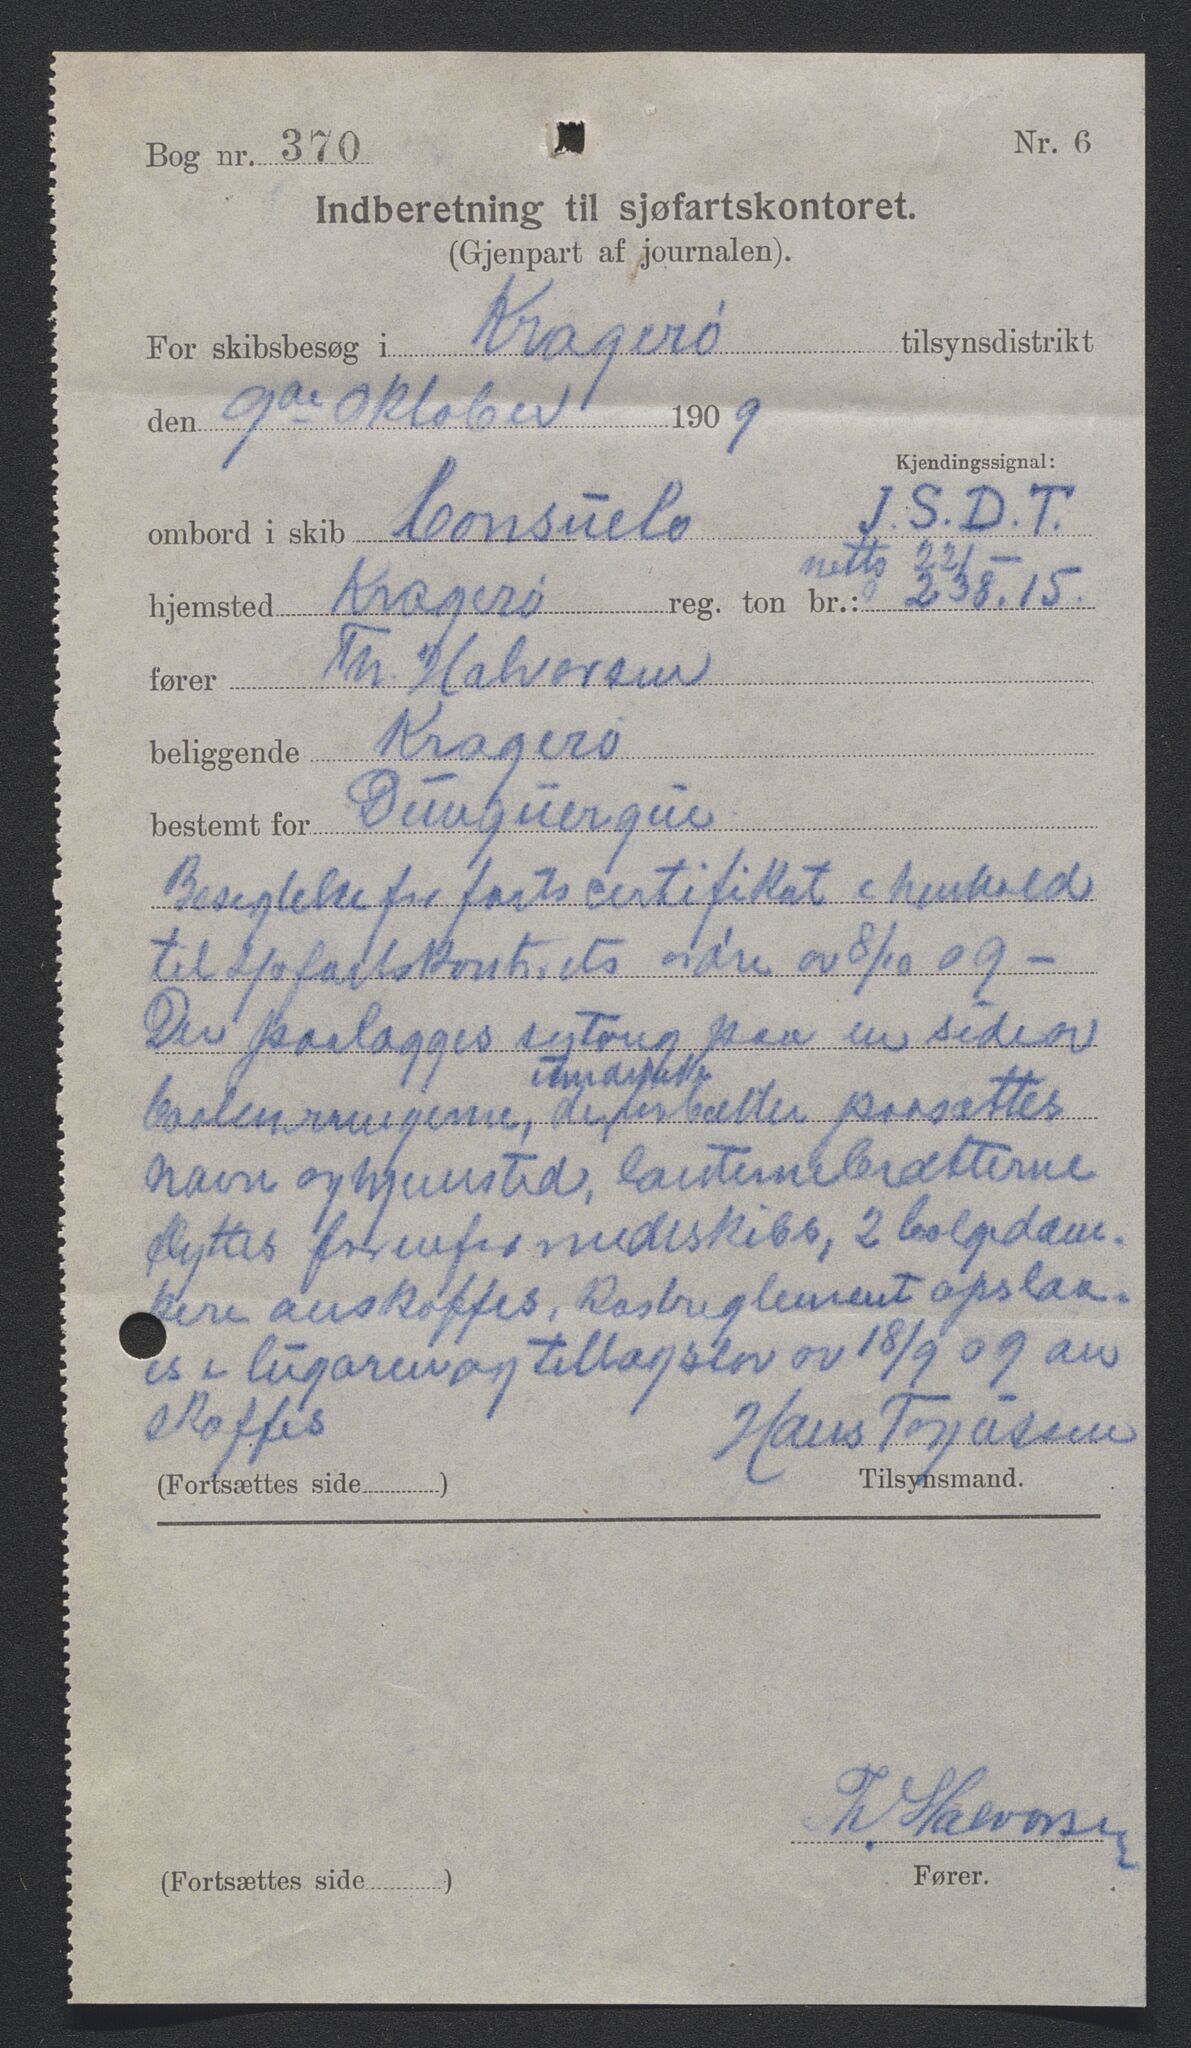 Bog nr. 370
Nr. 6
Indberetning til sjøfartskontoret.
(Gjenpart af journalen).
For skibsbesøg i Kragerø tilsynsdistrikt
den 9de Oktober 1909
Kjendingssignal:
ombord i skib Consuelo J.S.D.T.
netto 221 -
hjemsted Kragerø reg. ton br.: 238.15.
fører Th. Halvorsen
beliggende Kragerø
bestemt for Dunquerque
Besigtelse for farts certifikat i henhold
til Sjøfartskontorets ordre av 8/10 09 -
Der paalægges paa en side av
paasættes
navn og hjemsted, lanternebrætterne
flyttes forenfor midtskibs, 2 bølgedæm-
pere anskaffes, Kostreglement opslaa-
es i lugaren og tillagslov av 18/9 09 an
skaffes Hans Tojusen
(Fortsættes side )
Tilsynsmand.
Th. Halvorsen
(Fortsættes side )
Fører.